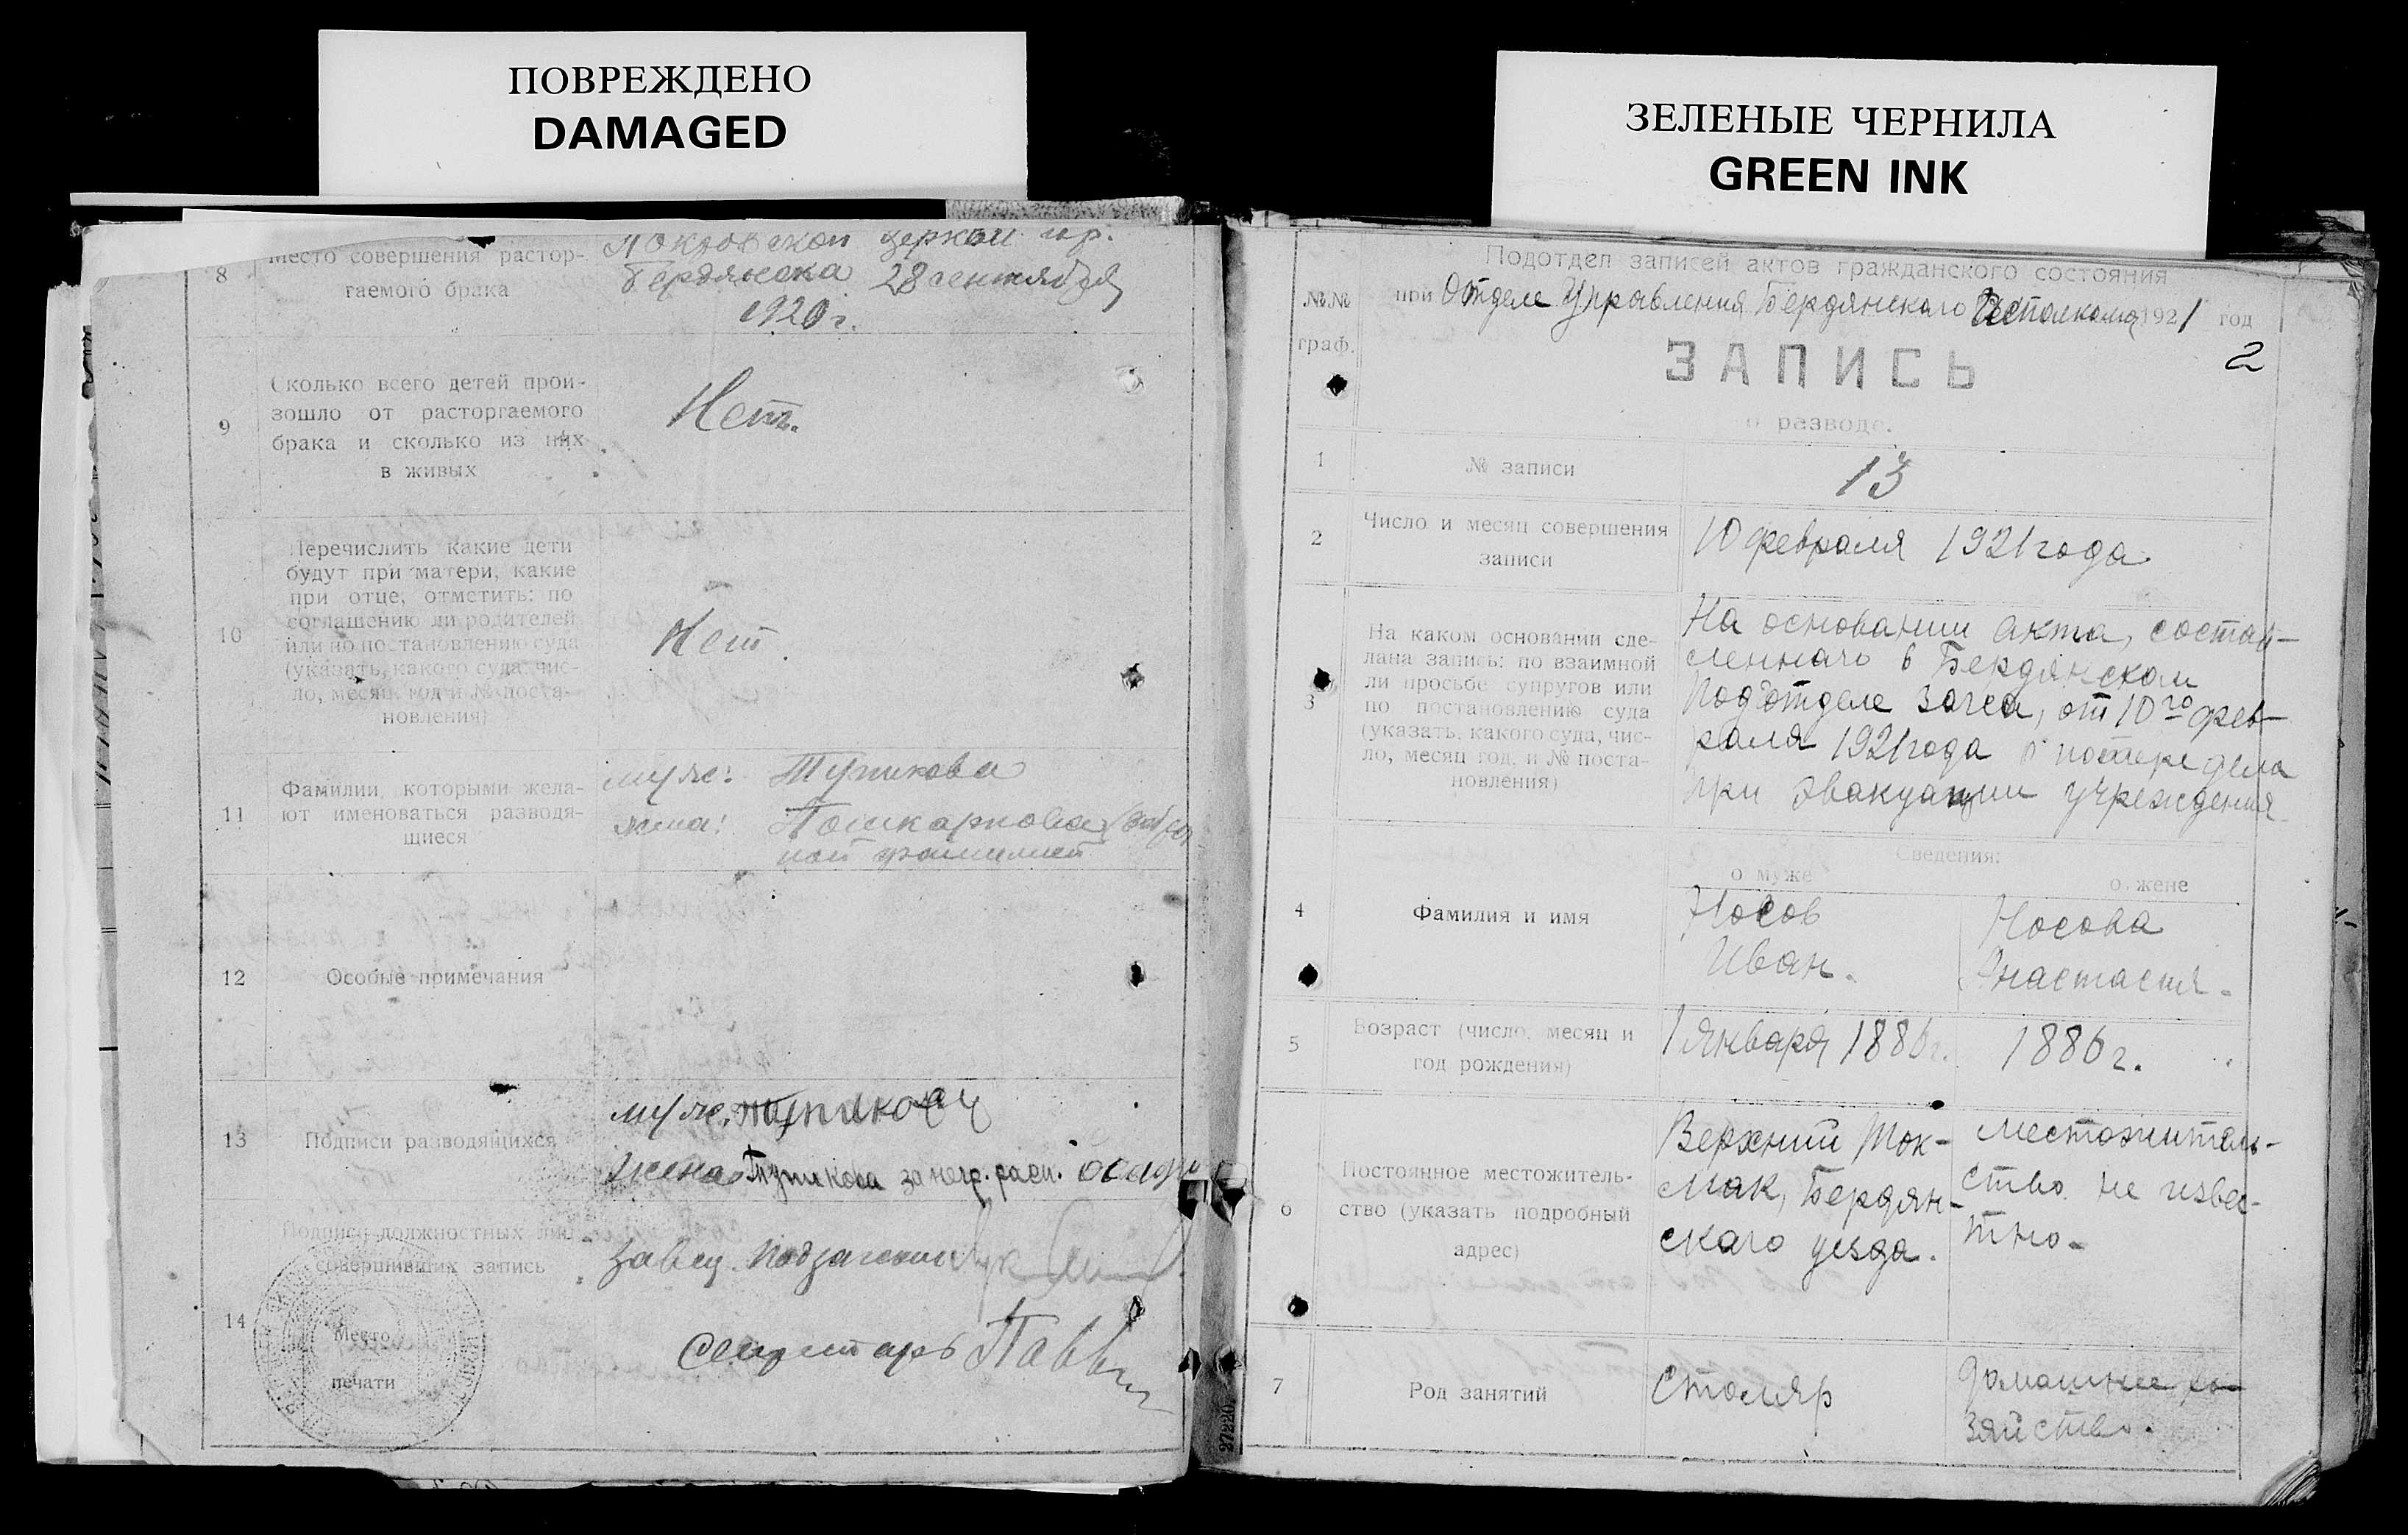 ПОВРЕЖДЕНО
DAMAGED
8
Место совершения растор-
гаемого брака
Покровской церкви гор.
Бердянска 28 сентября
1920 г.
9
Сколько всего детей прои-
зошло от расторгаемого
брака и сколько из них
в живых
Нет.
10
Перечислить какие дети
будут при матери, какие
при отце, отметить: по
соглашению ли родителей
или по постановлению суда
(указать, какого суда, чис-
ло, месяц, год и № поста-
новления)
Нет.
11
Фамилии, которыми жела-
ют именоваться разводя-
щиеся
муж:
жена:
фамилией
12
Особые примечания
13
Подписи разводящихся
муж.
жена
14
Подписи должностных лиц
совершивших запись
Место
печати
Завед.
Секретарь
27220
ЗЕЛЕНЫЕ ЧЕРНИЛА
GREEN INK
№№
граф.
Подотдел записей актов гражданского состояния
при Отделе Управления Бердянского Исполкома 1921 год
2
ЗАПИСЬ
о разводе.
1
№ записи
13
2
Число и месяц совершения
записи
10 февраля 1921 года
3
На каком основании сде-
лана запись: по взаимной
ли просьбе супругов или
по постановлению суда
(указать, какого суда, чис-
ло, месяц год, и № поста-
новления)
На основании акта, состав-
ленного в Бердянском
Подотделе Загса, от 10го фев-
раля 1921 года о потере дела
при эвакуации учреждения
Сведения:
о муже
о жене
4
Фамилия и имя
Носов
Иван.
Носова
Анастасия.
5
Возраст (число, месяц и
год рождения)
1 января 1886 г.
1886 г.
6
Постоянное местожитель-
ство (указать подробный
адрес)
Верхний Ток-
мак, Бердян-
скаго уезда.
местожитель-
ство не извес-
тно.
7
Род занятий
Столяр
домашнее хо-
зяйство.